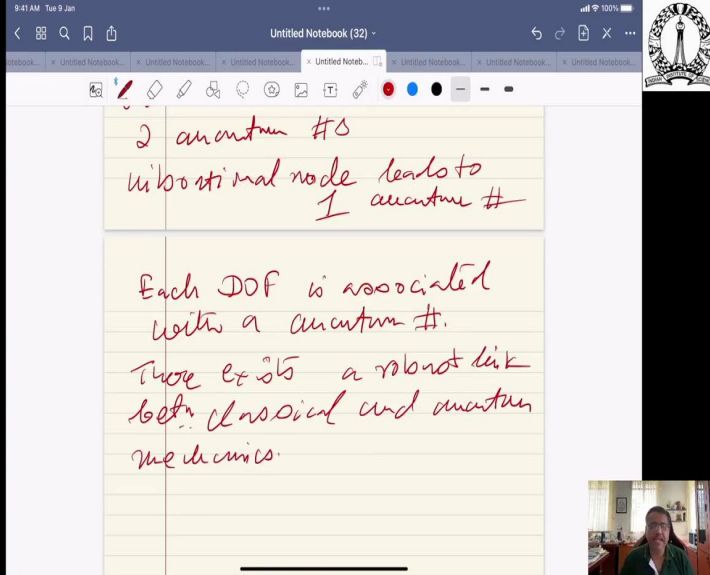 9:41 AM Tue 9 Jan
100%
Untitled Notebook (32)
otebook... × Untitled Notebook... × Untitled Notebook... × Untitled Notebook... × Untitled Noteb... × Untitled Notebook... × Untitled Notebook... × Untitled Notebook...
2 quantum #s
vibrational mode leads to
1 quantum #
Each DOF is associated
with a quantum #.
There exists a robust link
betn classical and quantum
mechanics.